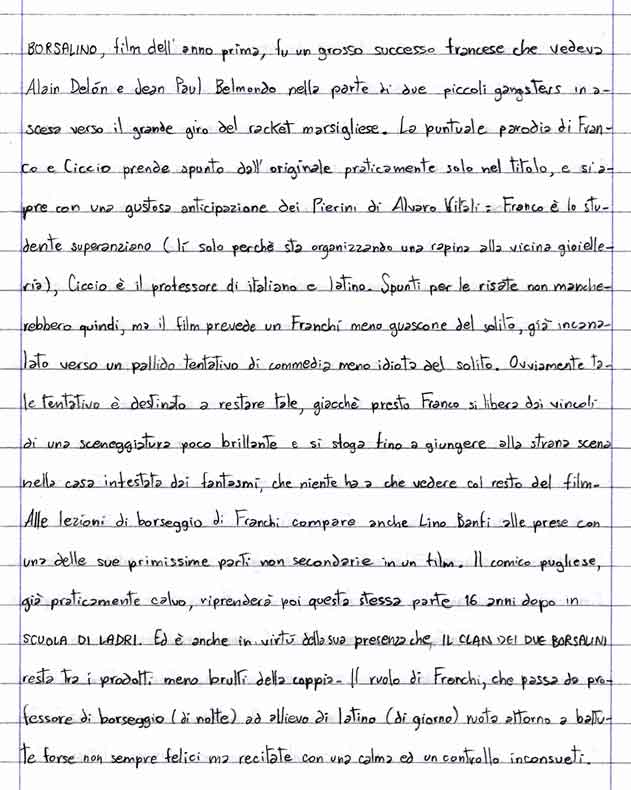 BORSALINO, film dell'anno prima, fu un grosso successo francese che vedeva
Alain Delón e Jean Paul Belmondo nella parte di due piccoli gangsters in a-
scesa verso il grande giro del racket marsigliese. La puntuale parodia di Fran-
co e Ciccio prende spunto dall'originale praticamente solo nel titolo, e si a-
pre con una gustosa anticipazione dei Pierini di Alvaro Vitali: Franco è lo stu-
dente superanziano (lì solo perchè sta organizzando una rapina alla vicina gioielle-
ria), Ciccio è il professore di italiano e latino. Spunti per le risate non manche-
rebbero quindi, ma il film prevede un Franchi meno guascone del solito, già incana-
lato verso un pallido tentativo di commedia meno idiota del solito. Ovviamente ta-
le tentativo è destinato a restare tale, giacchè presto Franco si libera dai vincoli
di una sceneggiatura poco brillante e si sfoga fino a giungere alla strana scena
nella casa infestata dai fantasmi, che niente ha a che vedere col resto del film.
Alle lezioni di borseggio di Franchi compare anche Lino Banfi alle prese con
una delle sue primissime parti non secondarie in un film. Il comico pugliese,
già praticamente calvo, riprenderà poi questa stessa parte 16 anni dopo in
SCUOLA DI LADRI. Ed è anche in virtù della sua presenza che, IL CLAN DEI DUE BORSALINI
resta tra i prodotti meno brutti della coppia. Il ruolo di Franchi, che passa da pro-
fessore di borseggio (di notte) ad allievo di latino (di giorno) ruota attorno a battu-
te forse non sempre felici ma recitate con una calma ed un controllo inconsueti.